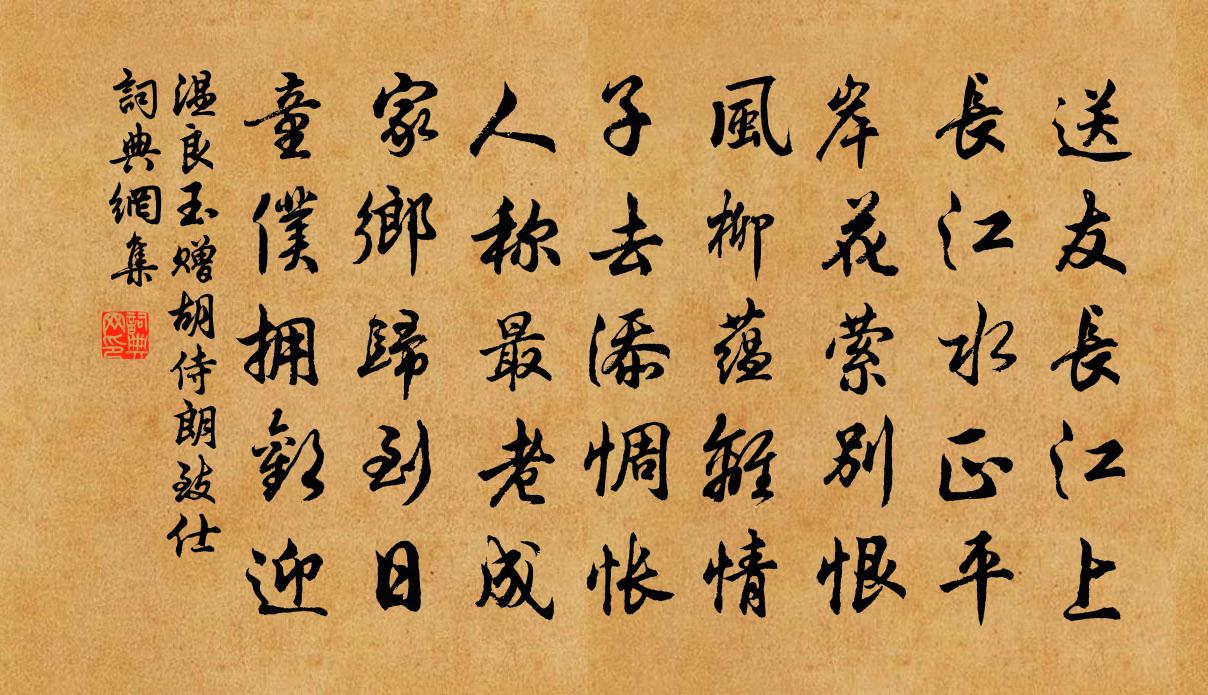 送友長江上
長江水正平
岸花縈別恨
風柳蘊離情
子去添惆悵
人称最老成
家鄉歸到日
童僕拥歡迎
温良玉赠胡侍朗致仕
詞典網集
詞典网印